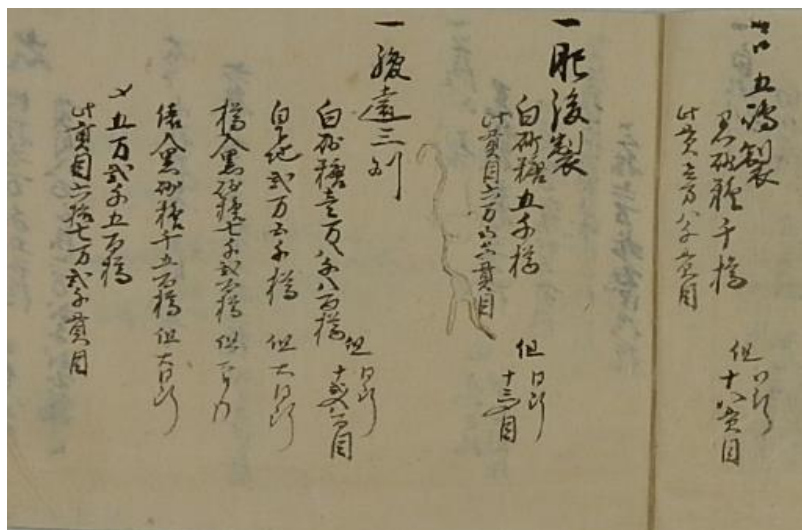 五嶋製
黒砂糖千樽
但同断
十八貫目
此貫目壱万八千貫目
一肥後製
白砂糖五千樽
但同断
十三貫目
此貫目六万五千貫目
一駿遠三州
白砂糖壱万八千八百樽
但同断
白地弐万五千樽 但右同断
樽入黒砂糖七千弐百樽 但
俵入黒砂糖千五百樽 但右同断
〆五万弐千五百樽
此貫目六拾七万弐千貫目